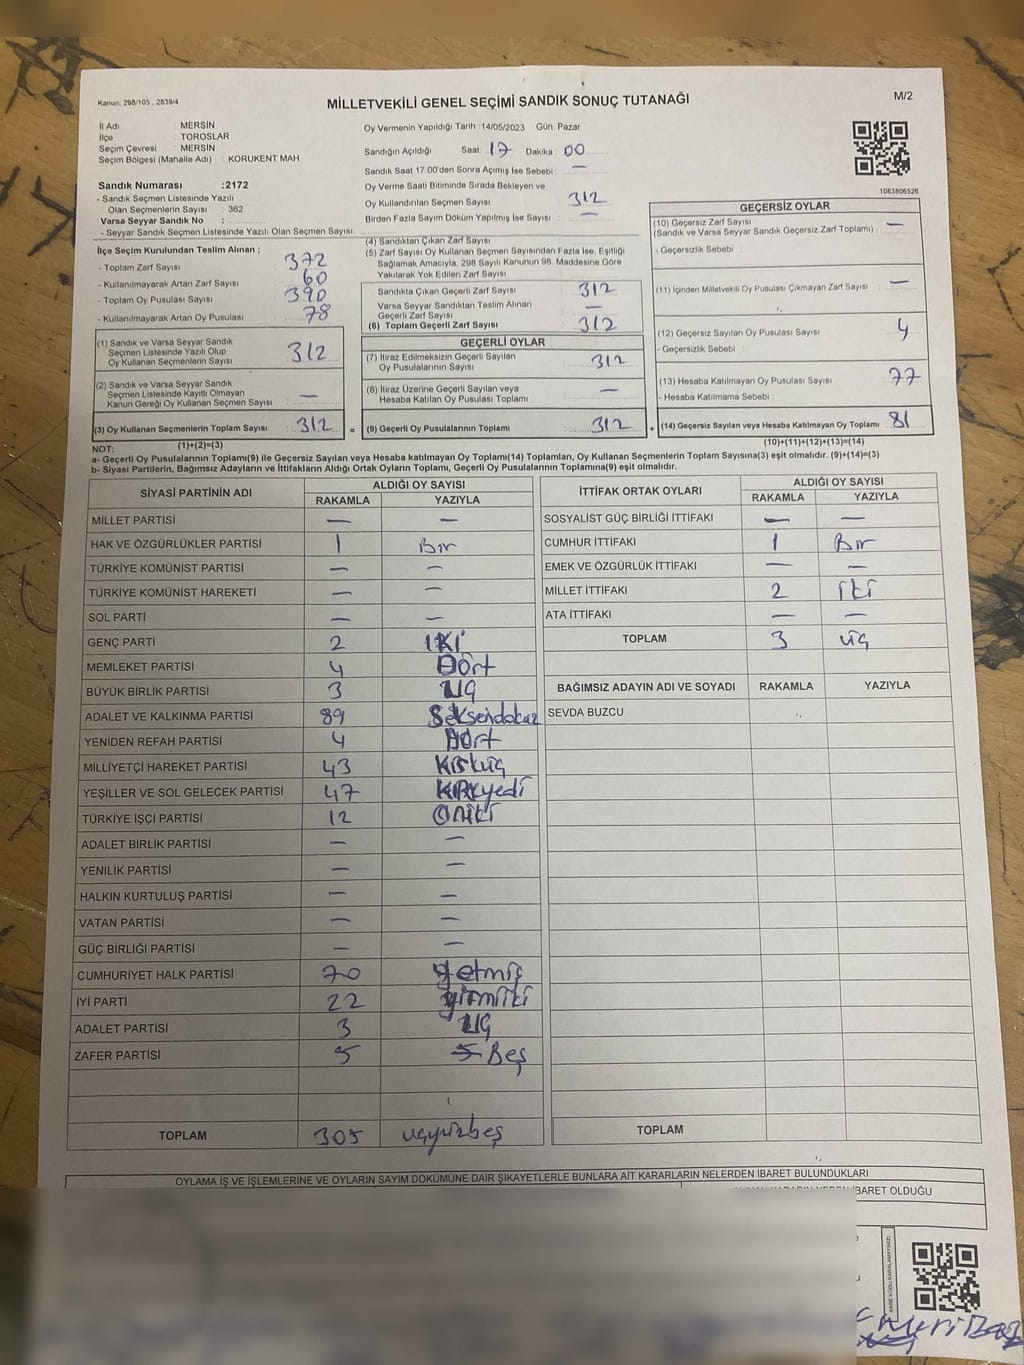 Kanun: 298/105 , 2839/4
MİLLETVEKİLİ GENEL SEÇİMİ SANDIK SONUÇ TUTANAĞI
M/2
İl Adı : MERSİN
İlçe : TOROSLAR
Seçim Çevresi : MERSİN
Seçim Bölgesi (Mahalle Adı) : KORUKENT MAH
Sandık Numarası :2172
- Sandık Seçmen Listesinde Yazılı
Olan Seçmenlerin Sayısı : 362
Varsa Seyyar Sandık No :
- Seyyar Sandık Seçmen Listesinde Yazılı Olan Seçmen Sayısı
Oy Vermenin Yapıldığı Tarih :14/05/2023 Gün: Pazar
Sandığın Açıldığı Saat: 17 Dakika: 00
Sandık Saat 17:00'den Sonra Açımış İse Sebebi : —
Oy Verme Saati Bitiminde Sırada Bekleyen ve
Oy Kullandırılan Seçmen Sayısı : 312
Birden Fazla Sayım Döküm Yapılmış İse Sayısı : —
1083806526
İlçe Seçim Kurulundan Teslim Alınan ;
- Toplam Zarf Sayısı : 372
- Kullanılmayarak Artan Zarf Sayısı : 60
- Toplam Oy Pusulası Sayısı : 390
- Kullanılmayarak Artan Oy Pusulası : 78
(1) Sandık ve Varsa Seyyar Sandık
Seçmen Listesinde Yazılı Olup
Oy Kullanan Seçmenlerin Sayısı : 312
(2) Sandık ve Varsa Seyyar Sandık
Seçmen Listesinde Kayıtlı Olmayan
Kanun Gereği Oy Kullanan Seçmen Sayısı : —
(3) Oy Kullanan Seçmenlerin Toplam Sayısı : 312
(4) Sandıktan Çıkan Zarf Sayısı
(5) Zarf Sayısı Oy Kullanan Seçmen Sayısından Fazla İse, Eşitliği
Sağlamak Amacıyla, 298 Sayılı Kanunun 98. Maddesine Göre
Yakılarak Yok Edilen Zarf Sayısı :
Sandıkta Çıkan Geçerli Zarf Sayısı : 312
Varsa Seyyar Sandıktan Teslim Alınan
Geçerli Zarf Sayısı : —
(6) Toplam Geçerli Zarf Sayısı : 312
GEÇERLİ OYLAR
(7) İtiraz Edilmeksizin Geçerli Sayılan
Oy Pusulalarının Sayısı : 312
(8) İtiraz Üzerine Geçerli Sayılan veya
Hesaba Katılan Oy Pusulası Toplamı : —
= (9) Geçerli Oy Pusulalarının Toplamı : 312 +
GEÇERSİZ OYLAR
(10) Geçersiz Zarf Sayısı
(Sandık ve Varsa Seyyar Sandık Geçersiz Zarf Toplamı) : —
- Geçersizlik Sebebi :
(11) İçinden Milletvekili Oy Pusulası Çıkmayan Zarf Sayısı : —
(12) Geçersiz Sayılan Oy Pusulası Sayısı : 4
- Geçersizlik Sebebi :
(13) Hesaba Katılmayan Oy Pusulası Sayısı : 77
- Hesaba Katılmama Sebebi :
(14) Geçersiz Sayılan veya Hesaba Katılmayan Oy Toplamı : 81
NOT: (1)+(2)=(3) (10)+(11)+(12)+(13)=(14)
a- Geçerli Oy Pusulalarının Toplamı(9) ile Geçersiz Sayılan veya Hesaba katılmayan Oy Toplamı(14) Toplamları, Oy Kullanan Seçmenlerin Toplam Sayısına(3) eşit olmalıdır. (9)+(14)=(3)
b- Siyasi Partilerin, Bağımsız Adayların ve İttifakların Aldığı Ortak Oyların Toplamı, Geçerli Oy Pusulalarının Toplamına(9) eşit olmalıdır.
SİYASİ PARTİNİN ADI ALDIĞI OY SAYISI
RAKAMLA YAZIYLA
MİLLET PARTİSİ — —
HAK VE ÖZGÜRLÜKLER PARTİSİ 1 Bir
TÜRKİYE KOMÜNİST PARTİSİ — —
TÜRKİYE KOMÜNİST HAREKETİ — —
SOL PARTİ — —
GENÇ PARTİ 2 İKİ
MEMLEKET PARTİSİ 4 Dört
BÜYÜK BİRLİK PARTİSİ 3 üç
ADALET VE KALKINMA PARTİSİ 89 Seksendokuz
YENİDEN REFAH PARTİSİ 4 Dört
MİLLİYETÇİ HAREKET PARTİSİ 43 Kırküç
YEŞİLLER VE SOL GELECEK PARTİSİ 47 Kırkyedi
TÜRKİYE İŞÇİ PARTİSİ 12 Oniki
ADALET BİRLİK PARTİSİ — —
YENİLİK PARTİSİ — —
HALKIN KURTULUŞ PARTİSİ — —
VATAN PARTİSİ — —
GÜÇ BİRLİĞİ PARTİSİ — —
CUMHURİYET HALK PARTİSİ 70 yetmiş
İYİ PARTİ 22 yirmiiki
ADALET PARTİSİ 3 üç
ZAFER PARTİSİ 5 5 Beş
TOPLAM 305 üçyüzbeş
İTTİFAK ORTAK OYLARI ALDIĞI OY SAYISI
RAKAMLA YAZIYLA
SOSYALİST GÜÇ BİRLİĞİ İTTİFAKI — —
CUMHUR İTTİFAKI 1 Bir
EMEK VE ÖZGÜRLÜK İTTİFAKI — —
MİLLET İTTİFAKI 2 iki
ATA İTTİFAKI — —
TOPLAM 3 üç
BAĞIMSIZ ADAYIN ADI VE SOYADI RAKAMLA YAZIYLA
SEVDA BUZCU
TOPLAM
OYLAMA İŞ VE İŞLEMLERİNE VE OYLARIN SAYIM DÖKÜMÜNE DAİR ŞİKAYETLERLE BUNLARA AİT KARARLARIN NELERDEN İBARET BULUNDUKLARI
İBARET OLDUĞU